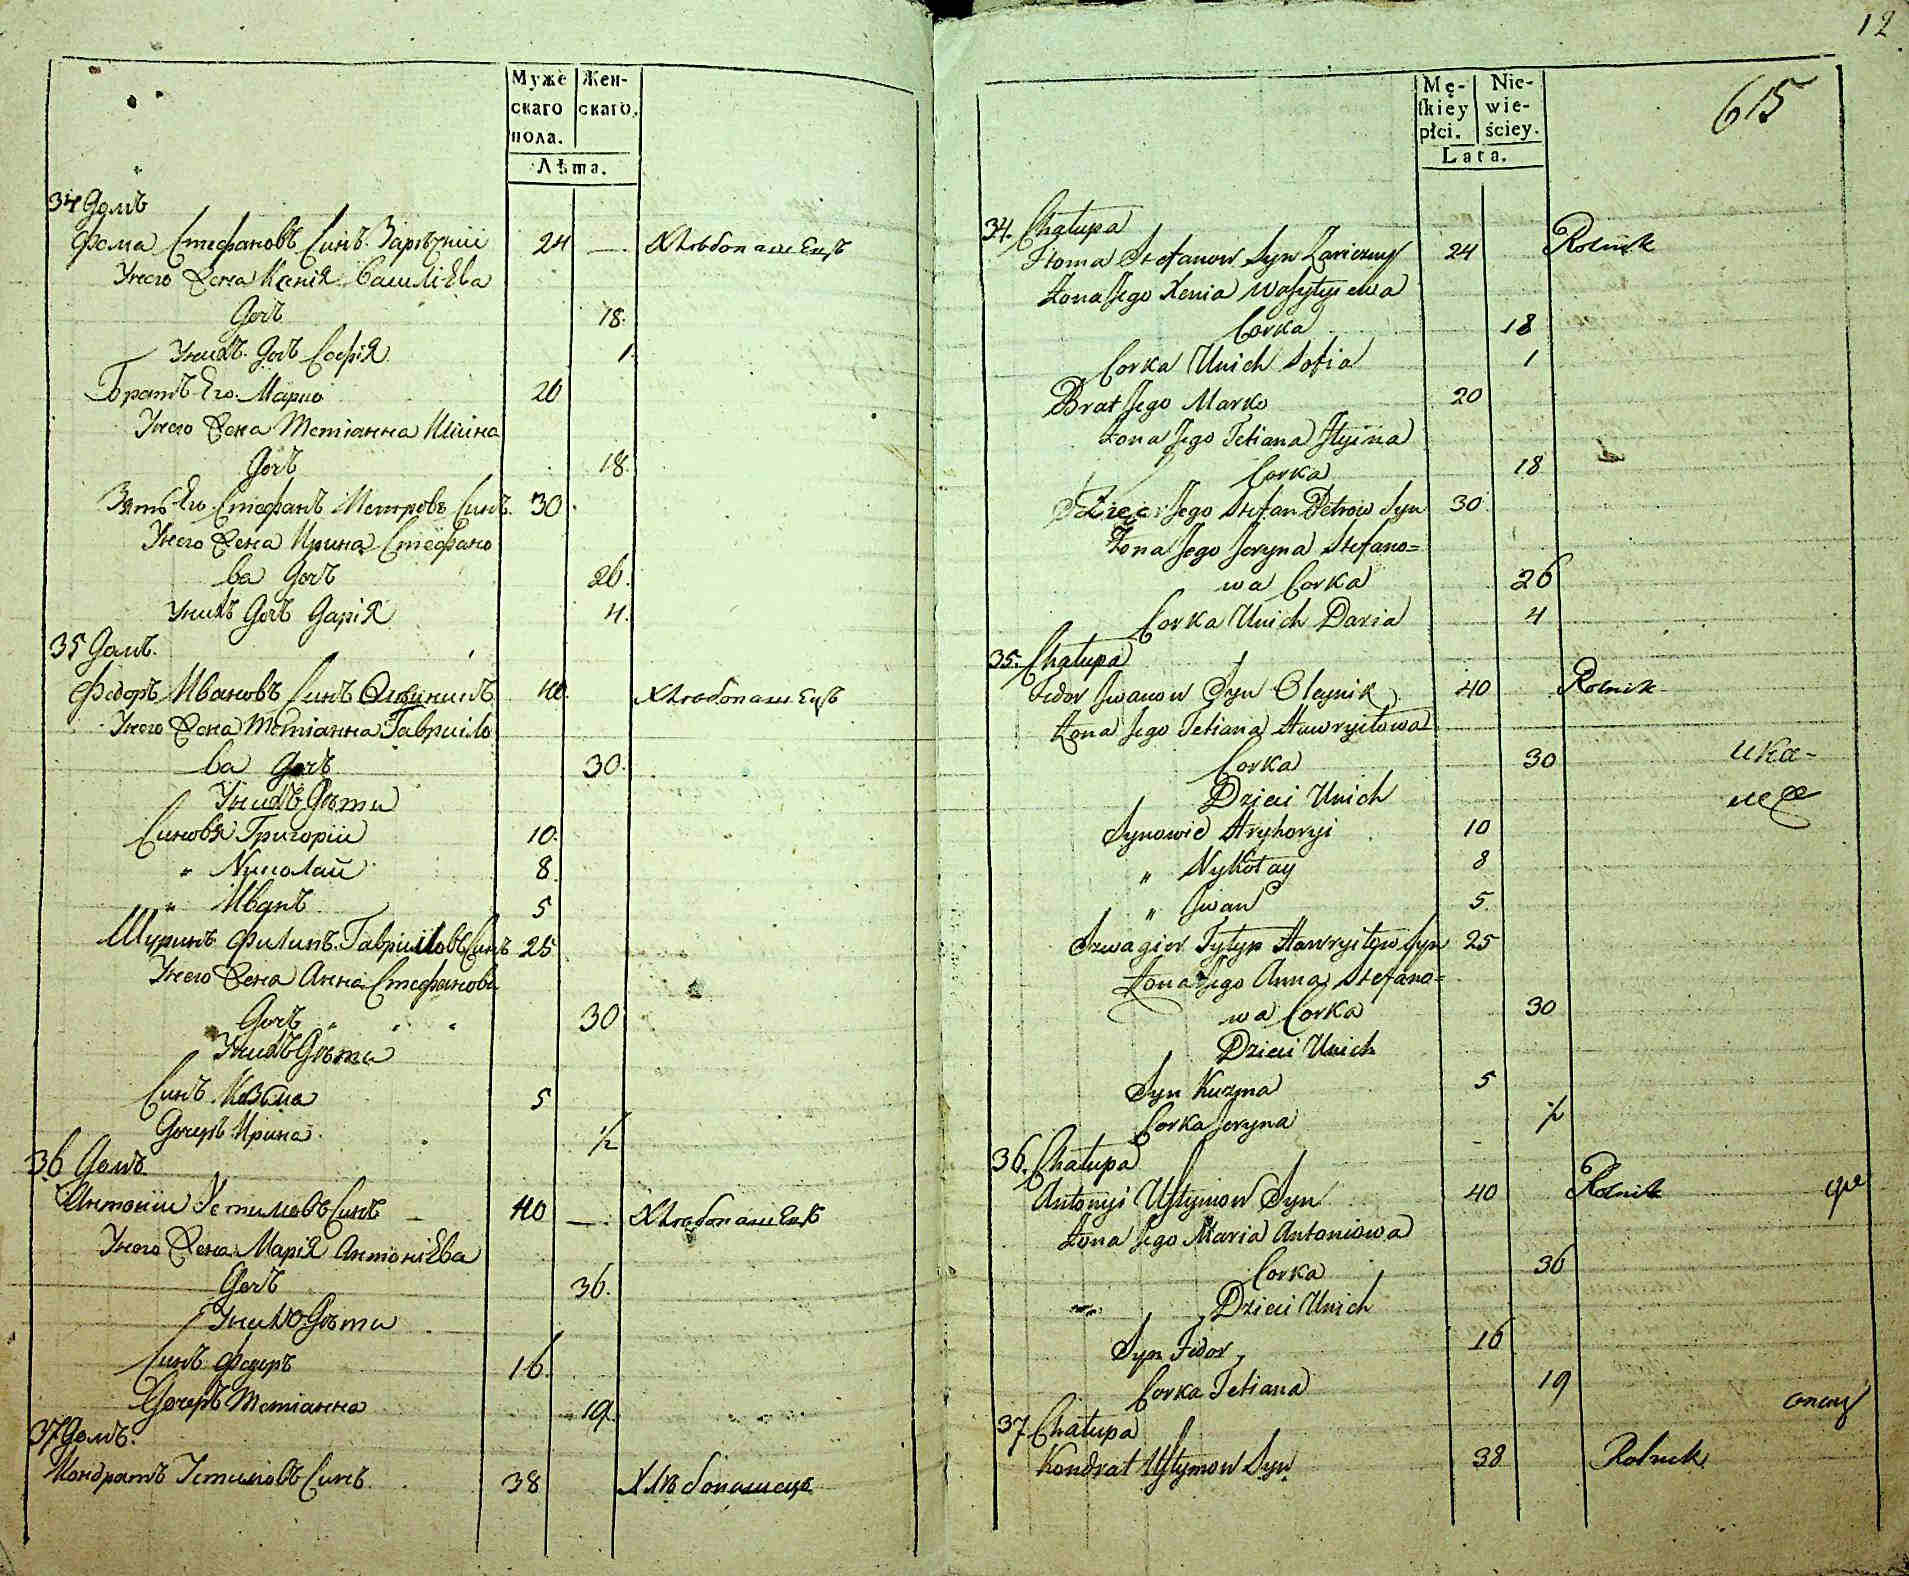 Муже
скаго
пола.
Жен-
скаго,
Лѣта.
34 Домъ
Фома Стефановъ Синъ Зарѣчніи 24 — Хлѣбопашецъ
Унего Жена Ксенія Василіева
Дочъ 18.
Унихъ Дочъ Софія 1.
Братъ Его Марко 20
Унего Жена Тетіанна Иліина
Дочъ 18.
Зять Его Стефанъ Петровъ Синъ 30.
Унего Жена Ирина Стефано
ва Дочъ 26.
Унихъ Дочъ Дарія 4.
35 Домъ.
Федоръ Ивановъ Синъ Олѣиникъ 40. Хлѣбопашецъ
Унего Жена Тетіанна Гавриіло
ва Дочъ 30.
Унихъ Дѣти
Синовя Григоріи 10.
" Николай 8.
" Иванъ 5
Шуринъ Филипъ Гавриіловъ Синъ 25
Унего Жена Анна Стефанова
Дочъ 30
Унихъ Дѣти
Синъ Козма 5
Дочеръ Ирина ½
36 Домъ
Антоніи Устимовъ Синъ 40 — Хлѣбопашецъ
Унего Жена Марія Антоніева
Дочъ 36.
Унихъ Дѣти
Синъ Федоръ 16.
Дочеръ Тетіанна 19.
37 Домъ.
Кондратъ Устимовъ Синъ 38 Хлѣбопашецъ
12
615
Mę-
skiey
płci.
Nie-
wie-
ściey.
Lata.
34. Chałupa
Htoma Stefanow Syn Zariczny 24 Rolnik
Żona Jego Xenia Wasylyiewa
Corka 18
Corka Unich Sofia 1
Brat Jego Marko 20
Żona Jego Tetiana Jlyina
Corka 18
Zięc Jego Stefan Petrow Syn 30.
Żona Jego Joryna Stefano=
wa Corka 26
Corka Unich Daria 4
35. Chałupa
Fedor Jwanow Syn Oleynik 40 Rolnik
Żona Jego Tetiana Hawryiłowa
Corka 30
Dzieci Unich
Synowie Hryhoryi 10
" Nykołay 8
" Jwan 5.
Szwagier Fylyp Hawryiłow Syn 25
Żona Jego Anna Stefano=
wa Corka 30
Dzieci Unich
Syn Kuzma 5
Corka Joryna ½
36. Chałupa
Antonyi Ustymow Syn 40 Rolnik
Żona Jego Maria Antoniowa
Corka 36
Dzieci Unich
Syn Fedor 16
Corka Tetiana 19
37 Chałupa
Kondrat Ustymow Syn 38 Rolnik